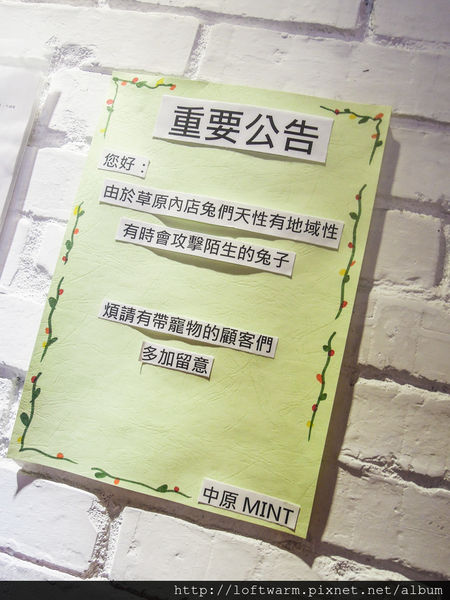 重要公告
您好：
由於草原內店兔們天性有地域性
有時會攻擊陌生的兔子
煩請有帶寵物的顧客們
多加留意
中原 MINT
http://loftwarm.pixnet.net/album